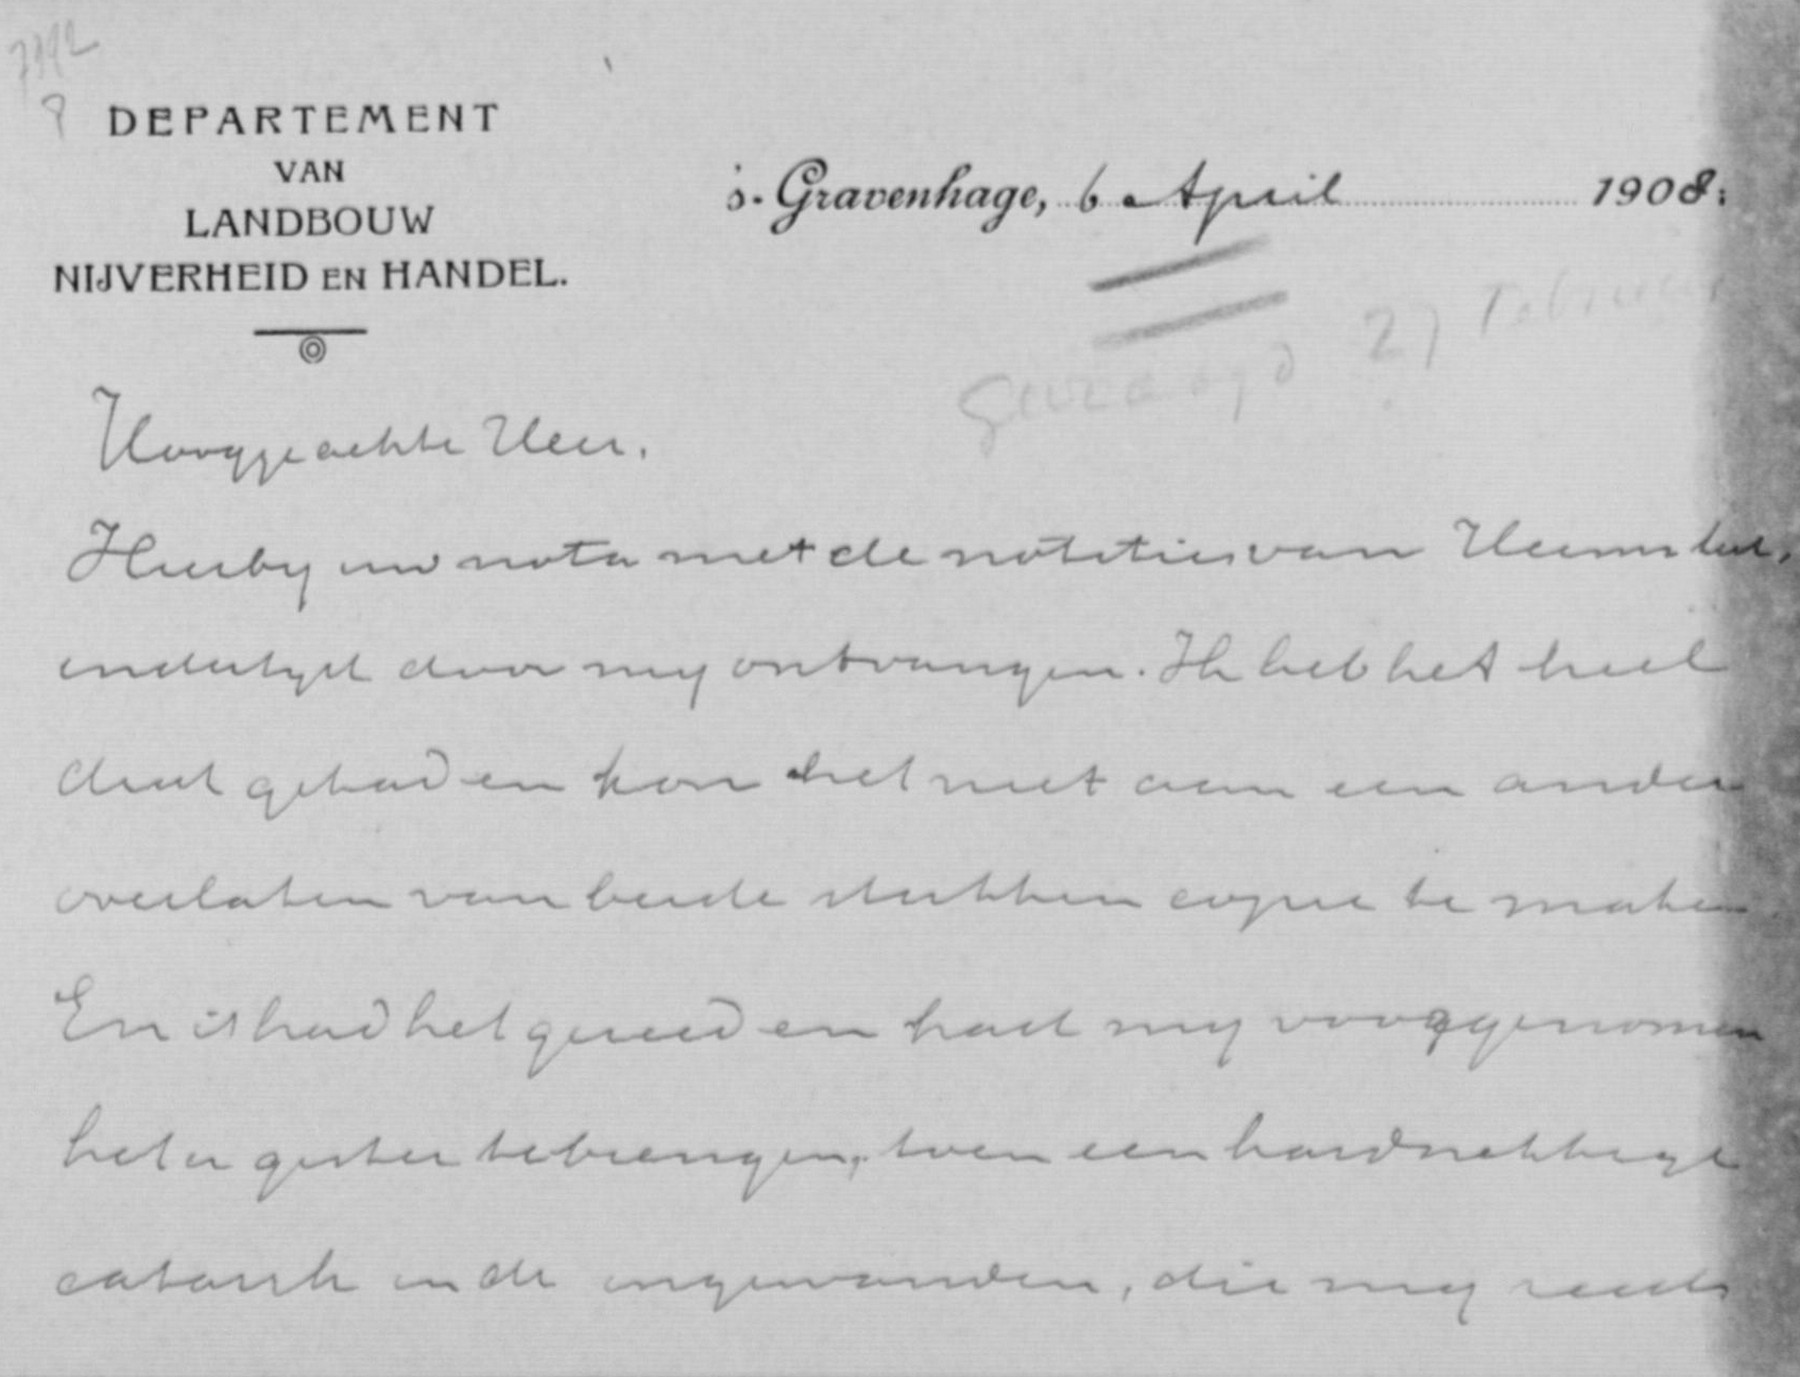 7192
8
DEPARTEMENT
VAN
LANDBOUW
NIJVERHEID EN HANDEL.
's-Gravenhage, 6 April 1908.
Gevraagd 27 Februari
Hooggeachte Heer.
Hierby uw nota met de notities van
indertyd door my ontvangen. Ik heb het heel
druk gehad en kon het niet aan een ander
overlaten van beide stukken copie te maken.
En ik had het gereed en had my voorgenomen
het u gister te brengen, toen een hardnekkige
catarrh in de ingewanden, die my reeds